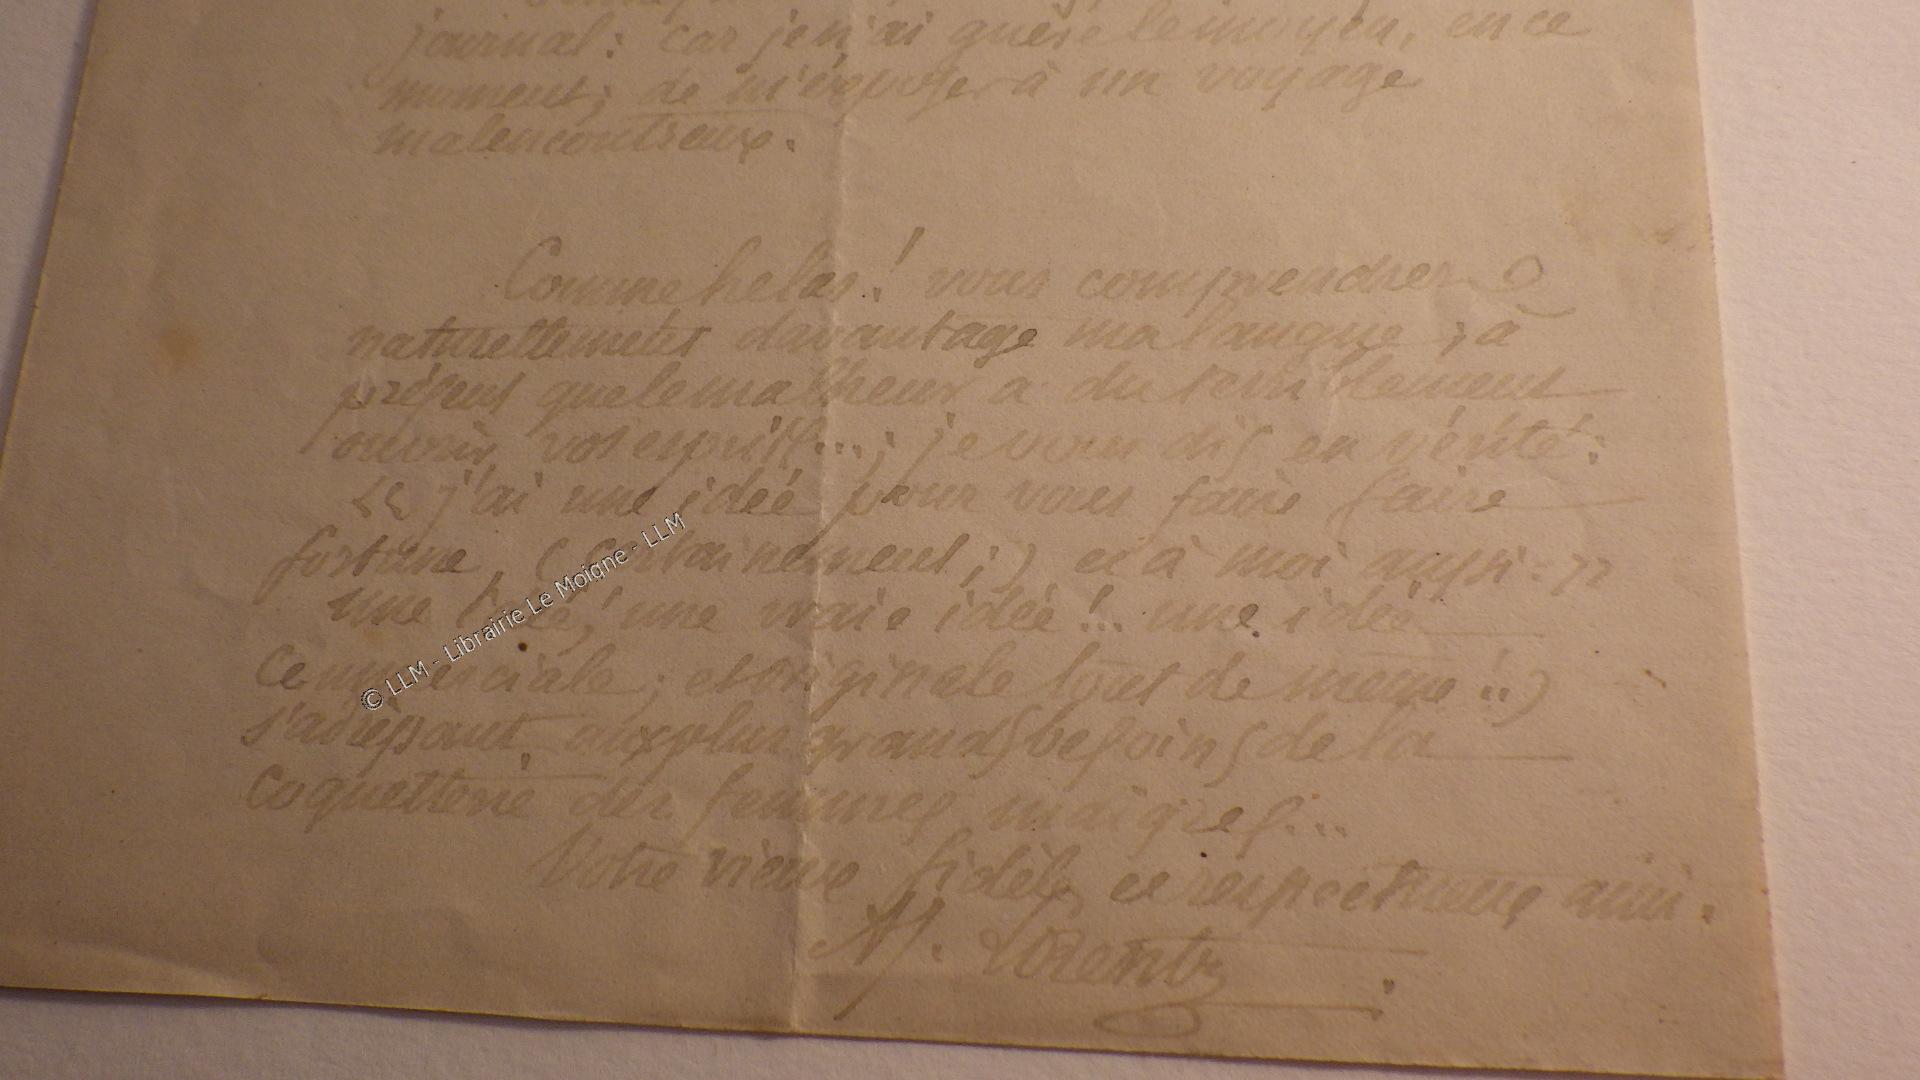 journal : car je n'ai guère le moyen, en ce
moment, de m'exposer à un voyage
malencontreux.
Comme hélas ! vous comprendrez
naturellement davantage ma langue, à
présent que le malheur a du terriblement
ouvrir vos esprits... ; je vous dis en vérité :
« j'ai une idée pour vous faire faire
fortune, (certainement ;) et à moi aussi : »
une idée, une vraie idée !... une idée
commerciale ; et originale tout de même !..)
s'adressant aux plus grands besoins de la
coquetterie des femmes maigres...
Votre vieux fidèle et respectueux ami.
Lorentz
© LLM - Librairie Le Moigne - LLM